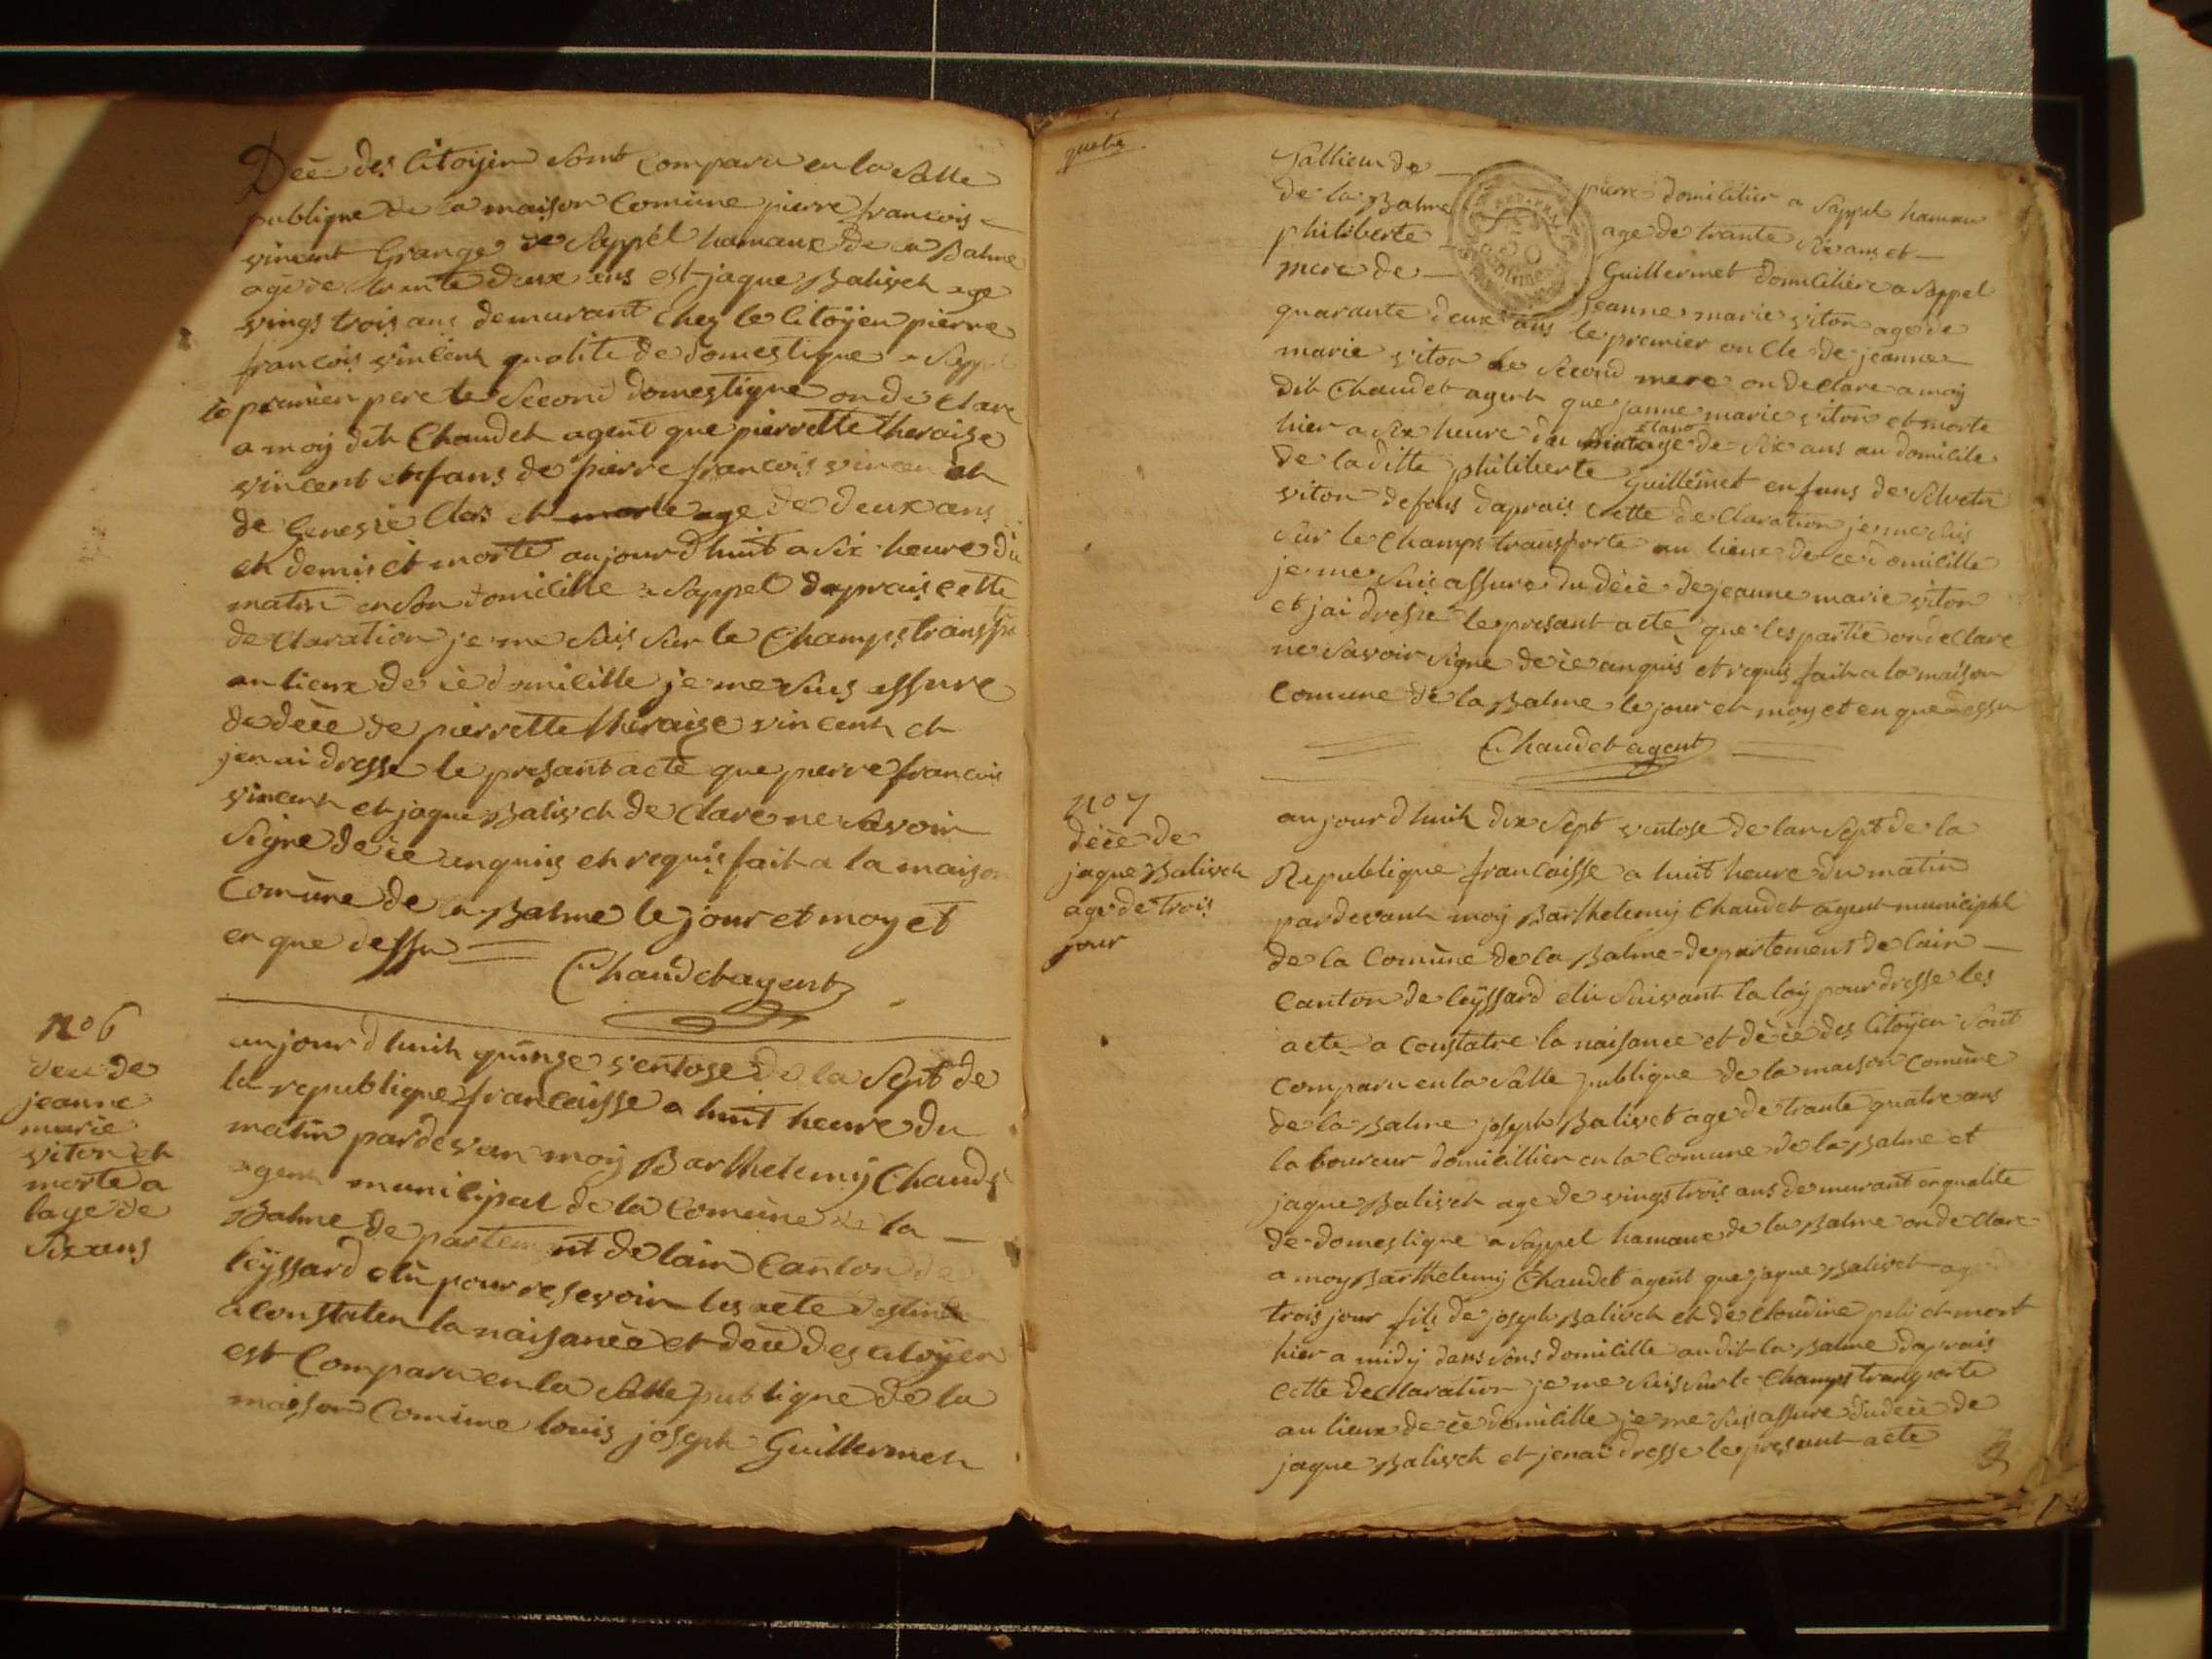 Deèe des Citoyen sont comparu en la Salle
publique de la maison Comùne pierre francois
vincent Grange de Sappel hamaux de la Balme
age de trante deux ans est jaque Balivet age
vings trois ans demurant chez le Citoÿen pierre
francois vincent qualite de domestique a Sappel
le premier pere le Second domestique on de Clare
a moÿ dit Chaudet agent que pierrette theraise
vincent enfans de pierre francois vincent et
de et morte age de deux ans
et demis et morte aujourdhuit a Six heure du
matin en Son domicille a Sappel daprais cette
de Claration je me Suis Sur le Champs transpo
au lieux de ce domicille je me Suis assure
de deèe de pierrette theraise vincent et
jen ai dresse le presant acte que pierre francois
vincent et jaque Balivet de Clare ne Savoir
Signe de ce anquis et requis fait a la maison
Comùne de la Balme le jour et moy et
en que dessu
Chaudet agent
no 6
deee de
jeanne
marie
viton et
morte a
lage de
Six ans
aujourdhuit quinse ventose de la Sept de
la republique francaisse a huit heure du
matin pardevan moÿ Barthelemÿ Chaudet
agent municipal de la Comùne de la
Balme departement de lain Canton de
leÿssard elù pour resevoir les acte destinee
a Constater la naisance et deèe des Citoÿen
est Comparu en la Salle publique de la
maison Comùne louis joseph Guillermet
de pierre domicilier a Sappel hamau
de la Balme age de trante Six ans et
philiberte Guillermet domiciliere a Sappel
mere de jeanne marie viton age de
quarante deux ans le premier oncle de jeanne
marie viton le Second mere on de Clare a moÿ
dit Chaudet agent que janne marie viton et morte
hier a Six heure du age de Six ans au domicile
de laditte philiberte Guillermet enfans de
viton defens daprais cette de Claration je me Suis
Sur le Champs transporte au lieux de ce domicille
je me Suis assure du dèce de jeanne marie viton
et jai dresse le presant acte que les partie on de Clare
ne Savoir Signe de ce anquis et requis fait a la maison
Comune de la Balme le jour et moy et en que dessu
Chaudet agent
no 7
dèce de
jaque Balivet
age de trois
jour
aujourdhuit dix Sept ventose de lan Sept de la
Republique francaisse a huit heure du matin
pardevant moÿ Barthelemÿ Chaudet agent municipal
de la Comùne de la Balme departement de lain
Canton de leÿssard elù Suivant la loÿ pour dresse les
acte a Constatre la naisance et dèce des Citoÿen Sont
Comparu en la Salle publique de la maison Comùne
de la Balme joseph Balivet age de trante quatre ans
laboureur domicillier en la Comune de la Balme et
jaque Balivet age de vings trois ans demurant en qualite
de domestique a Sappel hamaux de la Balme on de Clare
a moy Barthelemÿ Chaudet agent que jaque Balivet age de
trois jour fils de joseph Balivet et de Cloudine et mort
hier a midÿ dans Sons domicille audit la Balme daprais
cette declaration je me Suis Sur le Champs transporte
au lieux de ce domicille je me Suis assure du deèe de
jaque Balivet et jenai dresse le presant acte